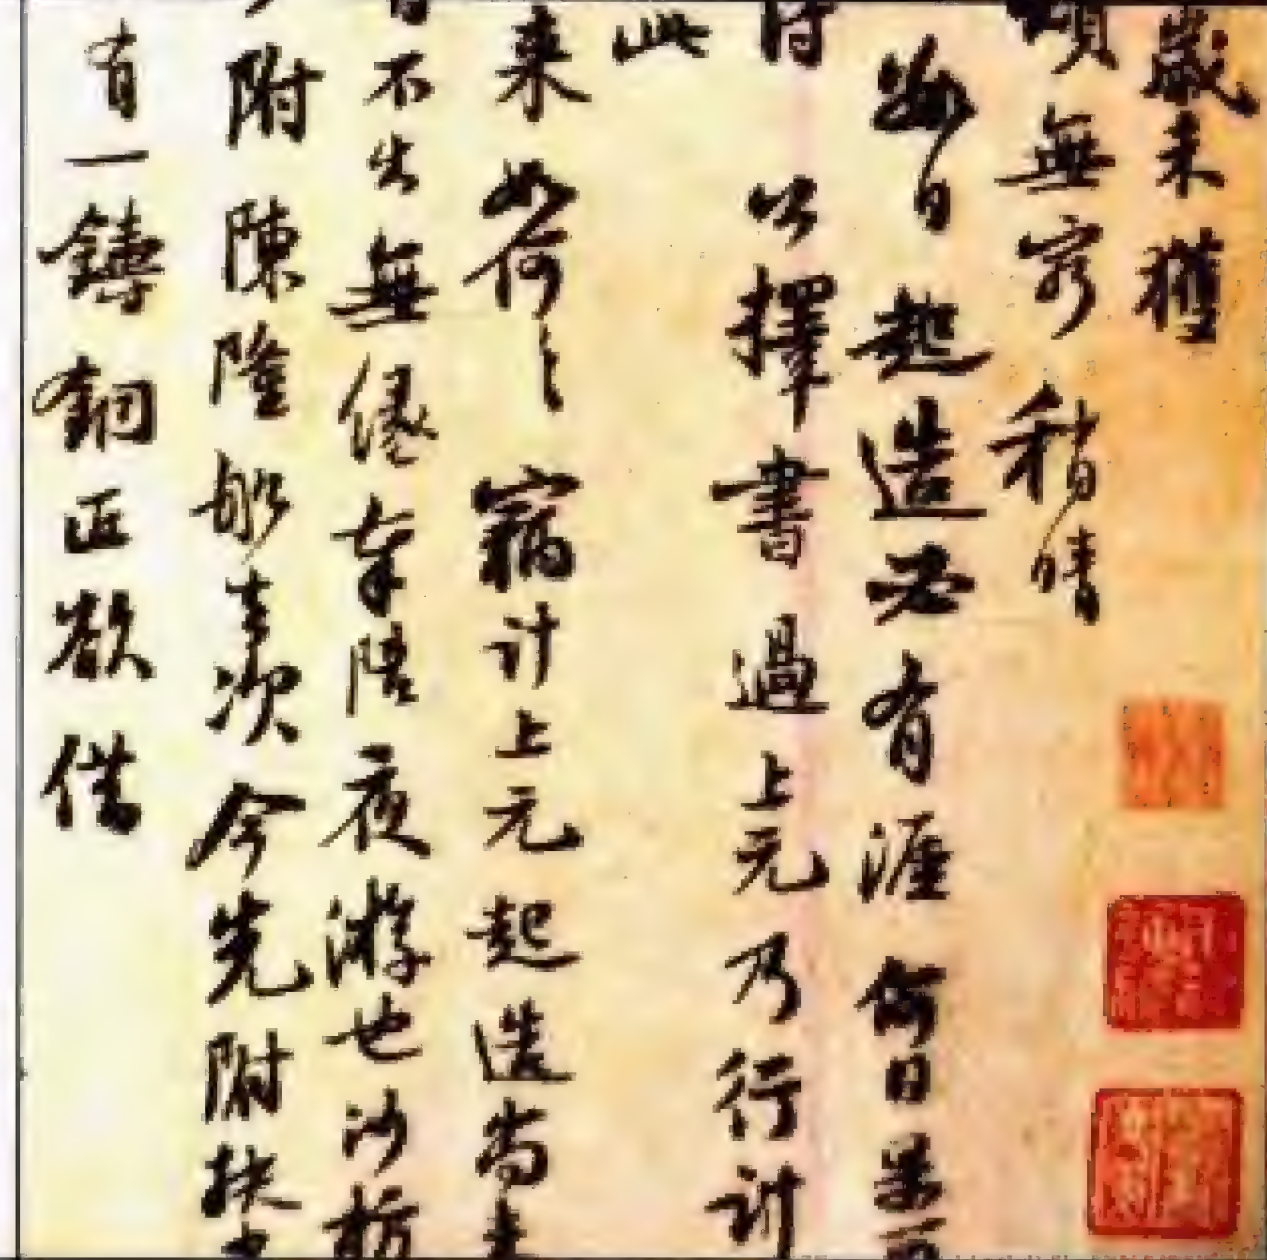 歲未獲
頌無窮稍晴
數日起造必有涯何日果
得公擇書過上元乃行計
此
來如何〻竊計上元起造尚未
不出無緣奉陪夜游也沙枋
附陳隆船去次今先附扶
有一鑄銅匠欲借